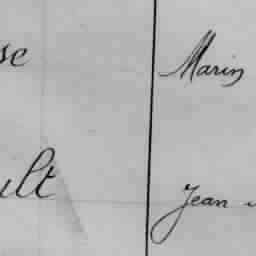 se Marin
ult Jean